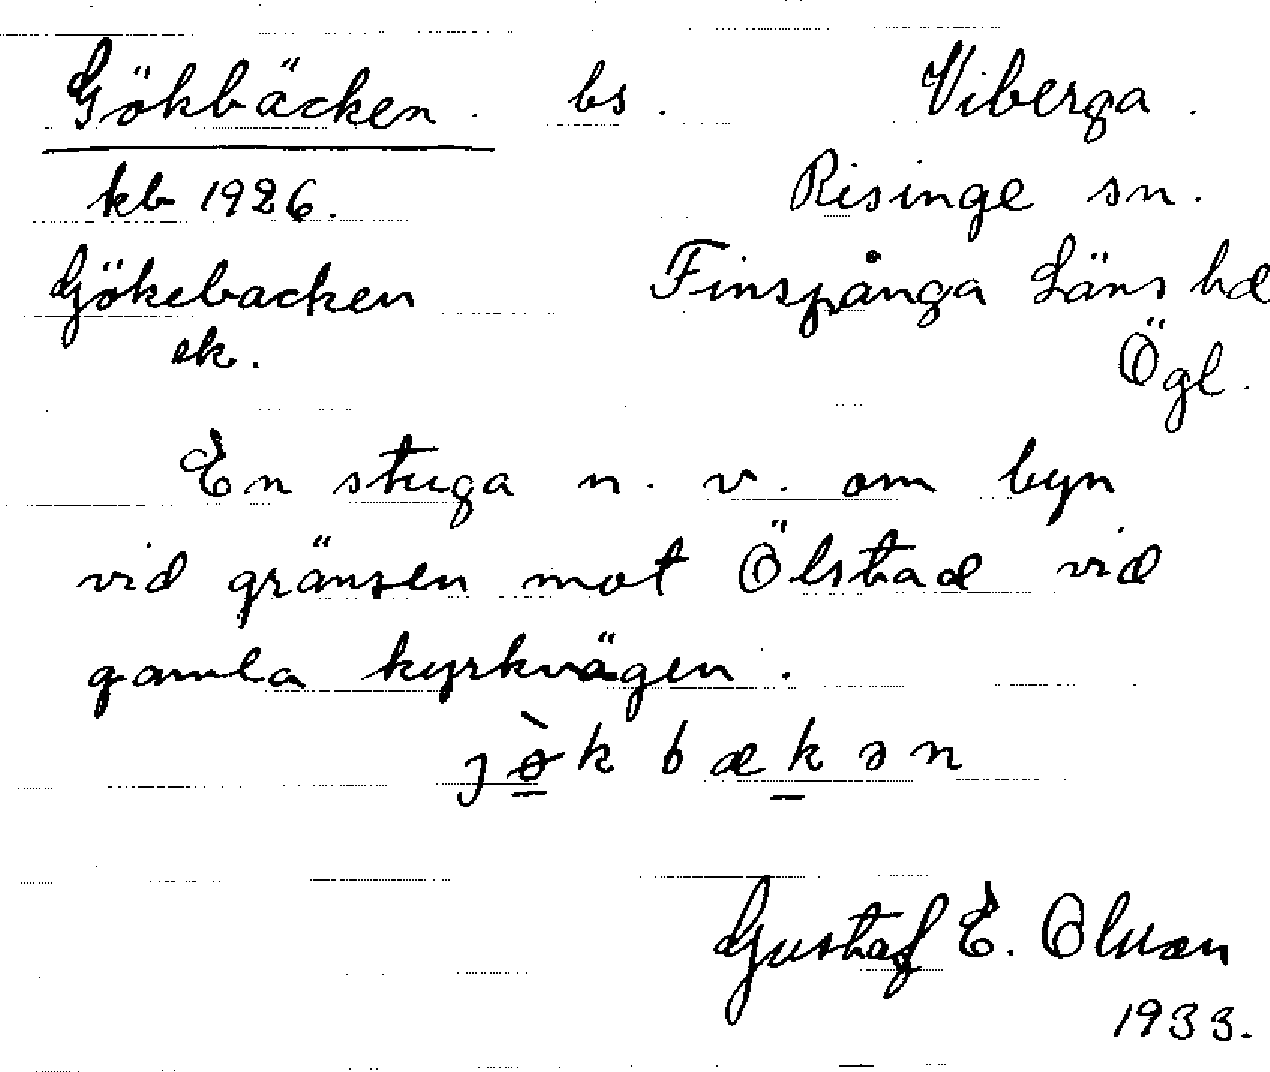 Gökbäcken. bs. Viberga.
kb 1926. Risinge sn.
Gökebacken Finspånga Läns hd
ek. Ögl.
En stuga n. v. om byn
vid gränsen mot Ölstad vid
gamla kyrkvägen.
jø̀kbækən
Gustaf E. Olsson
1933.